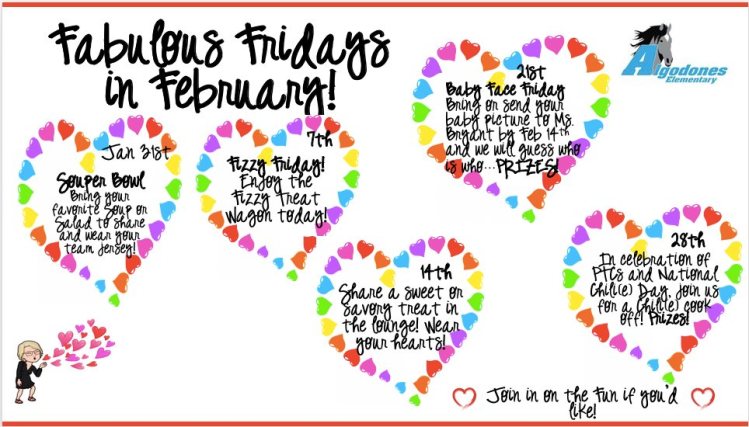 Fabulous Fridays
in February!
Algodones
Elementary
Jan 31st
Souper Bowl
Bring your
favorite Soup or
Salad to share
and wear your
team jersey!
7th
Fizzy Friday!
Enjoy the
Fizzy Treat
Wagon today!
14th
Share a sweet or
savory treat in
the lounge! Wear
your hearts!
21st
Baby Face Friday
Bring or send your
baby picture to Ms.
Bryant by Feb 14th
and we will guess who
is who...PRIZES!
28th
In celebration of
PTCs and National
Chil(e) Day, join us
for a Chil(e) cook
off! Prizes!
Join in on the Fun if you'd
like!